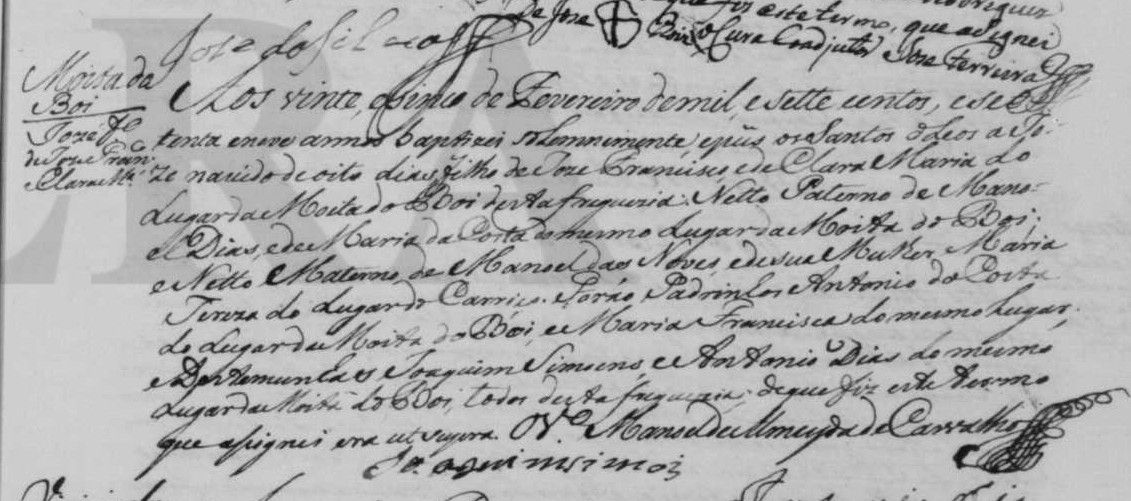 que fiz este termo, que asignei
Joze da Silva
De Joze
Cura Coadjutor Joze Ferreira
Moita do
Boi
Joze fo
de Joze Fran
e Clara Ma
Aos vinte, e sinco de Fevereiro de mil, e sette centos, e se
tenta e nove annos baptizei solemnemente, e puis os Santos Oleos a Jo-
ze nacido de oito dias, filho de Joze Francisco, e de Clara Maria do
Lugar da Moita do Boi desta freguezia: Netto Paterno de Mano-
el Dias, e de Maria da Costa do mesmo Lugar da Moita do Boi;
e Netto Materno, de Manoel das Neves, e de sua Mulher, Maria
Tereza do Lugar do Carriço. Forão Padrinhos Antonio da Costa
do Lugar da Moita do Boi, e Maria Francisca do mesmo Lugar,
e Destemunhas Joaquim Simoens, e Antonio Dias do mesmo
Lugar da Moita do Boi, todos desta freguezia; de que fiz este termo
que asignei era ut supra. O Vo. Manoel de Almeyda de Carvalho
Joaquim Simois